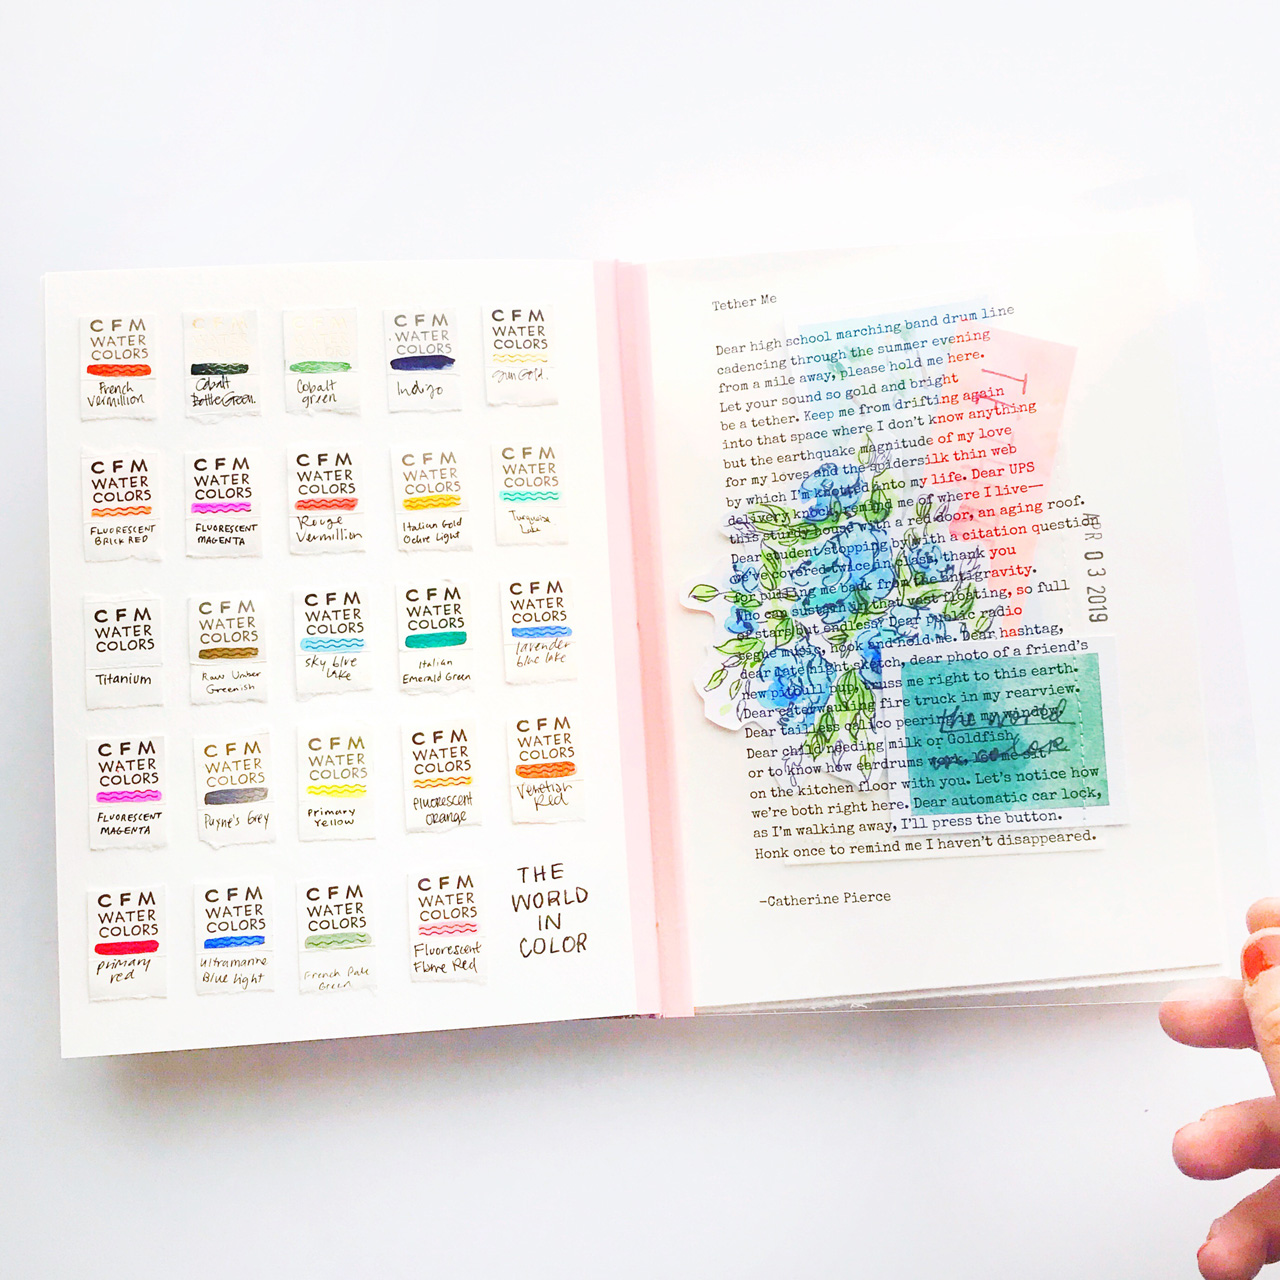 CFM
WATER
COLORS
French
Vermillion
CFM
WATER
COLORS
Cobalt
Bottle Green.
CFM
WATER
COLORS
Cobalt
green
CFM
WATER
COLORS
Indigo
CFM
WATER
COLORS
Sun Gold.
CFM
WATER
COLORS
FLUORESCENT
BRICK RED
CFM
WATER
COLORS
FLUORESCENT
MAGENTA
CFM
WATER
COLORS
Rouge
Vermillion
CFM
WATER
COLORS
Italian Gold
Ochre Light
CFM
WATER
COLORS
Turquoise
Lake
CFM
WATER
COLORS
Titanium
CFM
WATER
COLORS
Raw Umber
Greenish
CFM
WATER
COLORS
sky blue
lake
CFM
WATER
COLORS
Italian
Emerald Green
CFM
WATER
COLORS
lavender
blue lake
CFM
WATER
COLORS
FLUORESCENT
MAGENTA
CFM
WATER
COLORS
Payne's Grey
CFM
WATER
COLORS
Primary
Yellow
CFM
WATER
COLORS
Fluorescent
Orange
CFM
WATER
COLORS
Venetian
Red
CFM
WATER
COLORS
primary
red
CFM
WATER
COLORS
Ultramarine
Blue light
CFM
WATER
COLORS
French Pale
Green
CFM
WATER
COLORS
Fluorescent
Flame Red
THE
WORLD
IN
COLOR
Tether Me
Dear high school marching band drum line
cadencing through the summer evening
from a mile away, please hold me here.
Let your sound so gold and bright
be a tether. Keep me from drifting again
into that space where I don't know anything
but the earthquake magnitude of my love
for my loves and the spidersilk thin web
by which I'm knotted into my life. Dear UPS
delivery knock, remind me of where I live—
this sturdy hound with a red door, an aging roof.
Dear student stopping by with a citation question
we've covered twice in class, thank you
for pulling me back from the antigravity.
Who can sustain in that vast floating, so full
of stars but endless? Dear public radio
segue music, hook and hold me. Dear hashtag,
dear late night sketch, dear photo of a friend's
new pitbull pup, truss me right to this earth.
Dear caterwauling fire truck in my rearview.
Dear tailless calico peering in my window.
Dear child needing milk or Goldfish
or to know how eardrums work, let me sit
on the kitchen floor with you. Let's notice how
we're both right here. Dear automatic car lock,
as I'm walking away, I'll press the button.
Honk once to remind me I haven't disappeared.
—Catherine Pierce
APR 03 2019
the world